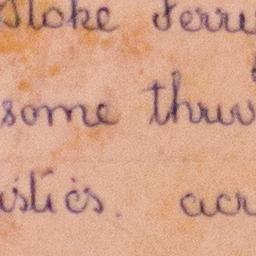 Stoke Ferr
some thru
istics. acr